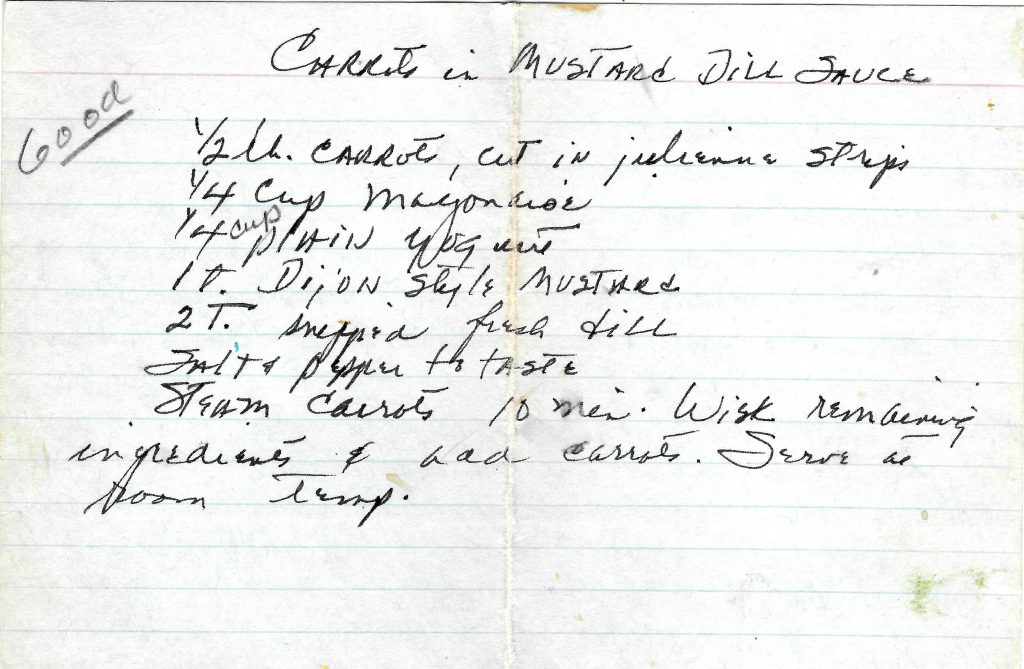 CARROTS in MUSTARD DILL SAUCE
Good
1/2 lb. CARROTS, cut in julienne strips
1/4 cup Mayonaise
1/4 cup PLAIN yogurt
1 t. Dijon style MUSTARD
2 T. snipped fresh dill
Salt & pepper to taste
Steam carrots 10 min. Wisk remaining
ingredients & add carrots. Serve at
room temp.